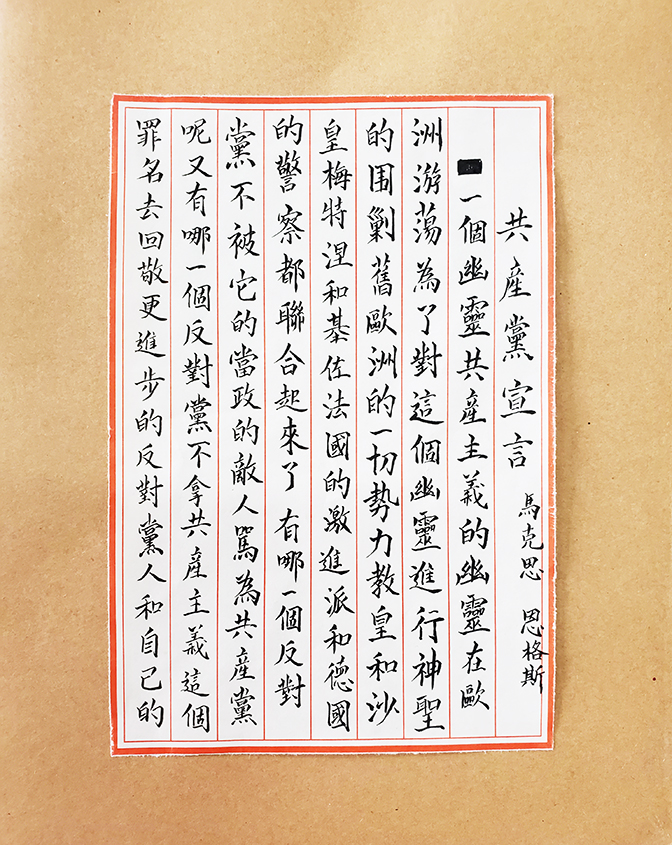 共產黨宣言 馬克思 恩格斯
一個幽靈共產主義的幽靈在歐
洲游蕩為了對這個幽靈進行神聖
的围剿舊歐洲的一切勢力教皇和沙
皇梅特涅和基佐法國的激進派和德國
的警察都聯合起來了有哪一個反對
黨不被它的當政的敵人罵為共產黨
呢又有哪一個反對黨不拿共產主義這個
罪名去回敬更進步的反對黨人和自己的